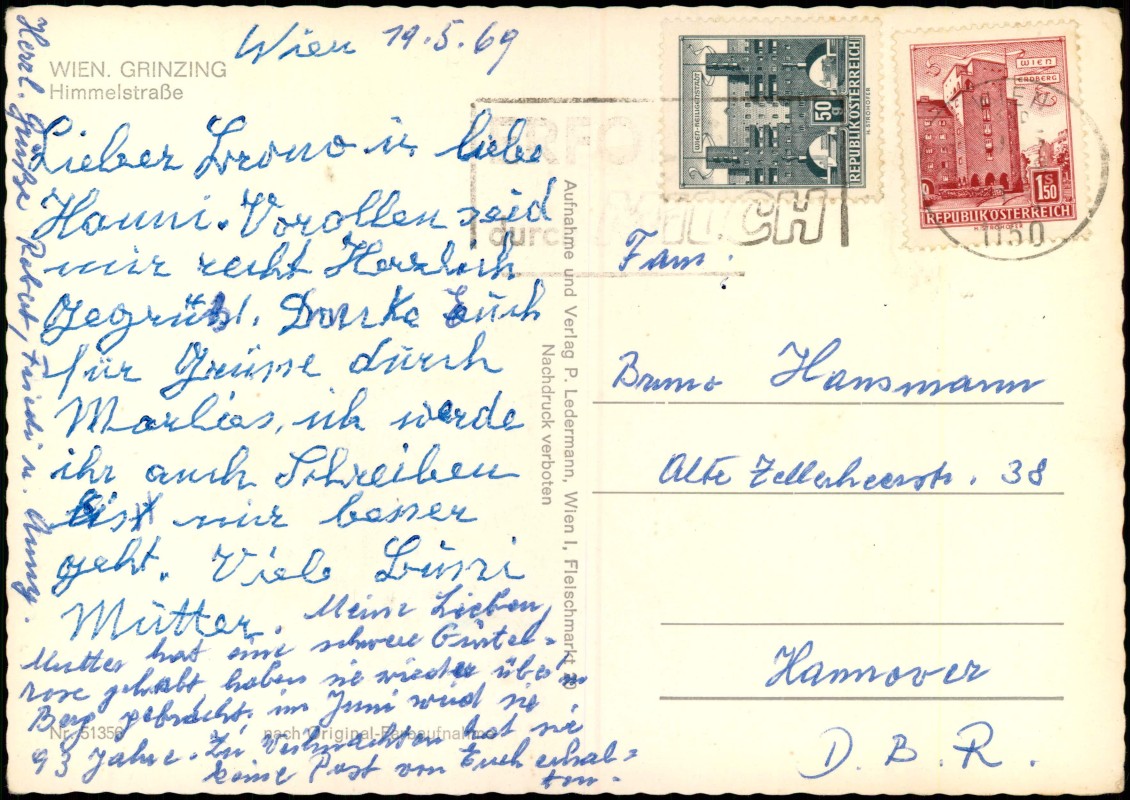 Wien 19.5.69
WIEN. GRINZING
Himmelstraße
Lieber Brono u. liebe
Hanni. Vorollen seid
mir recht Herzlich
Gegrüßt. Danke Euch
für Grüsse dürch
Marlies, ich werde
ihr auch Schreiben
bist mir besser
geht. Viele Bussi
Mütter.
Meine Lieben,
Mutter hat eine schwere Gürtel=
rose gehabt, haben sie wieder über'n
Berg gebracht. im Juni wird sie
93 Jahre. Zu Weihnachten hat sie
keine Post von Euch erhal=
ten.
Herzl. Grüsse Robert, Friedi u. Anny.
Nr. 51356
nach Original-Farbaufnahme
Aufnahme und Verlag P. Ledermann, Wien I, Fleischmarkt 20
Nachdruck verboten
WIEN-HEILIGENSTADT
50 g
REPUBLIK ÖSTERREICH
H. STROHOFER
WIEN
ERDBERG
1 S 50
REPUBLIK ÖSTERREICH
H. STROHOFER
WIEN
1150
durch MILCH
Fam.
Bruno Hansmann
Alte Zellerheerstr. 38
Hannover
D. B. R.